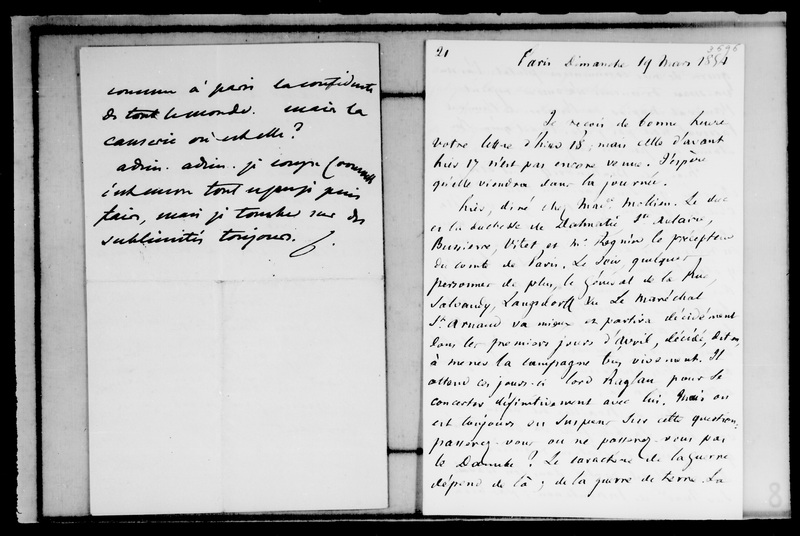 comme à paris la confidente
de tout le monde. mais la
causerie où est elle?
adieu. adieu. je
c'est encore tout ce que je puis
faire, mais je tombe sur des
sublimités toujours.
21
2696
Paris Dimanche 19 Mars 1854
Je reçois de bonne heure
votre lettre d'hier 18, mais celle d'avant
hier 17 n'est pas encore venue. J'espère
qu'elle viendra dans la journée.
Hier, diné chez Mad. Mollien. Le duc
et la duchesse de Dalmatie, Ste Aulaire,
Bussierre, Vitet et Mr Régnier le précepteur
du comte de Paris. Le soir, quelques
personnes de plus, le général de la Rue,
Salvandy, Langsdorff &a. Le Maréchal
St Arnaud va mieux et partira décidément
dans les premiers jours d'Avril, décidé, dit-on,
à mener la campagne très vivement. Il
attend ces jours-ci lord Raglan pour se
concerter définitivement avec lui. Mais on
est toujours en suspens sur cette question:
passerez-vous ou ne passerez-vous pas
le Danube? Le caractère de la guerre
dépend de là; de la guerre de terre. La
8